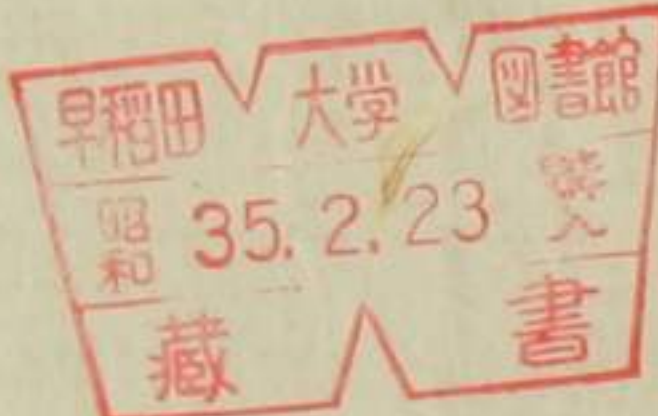 早稲田 大学 図書館
昭和 35. 2. 23 購入
藏書